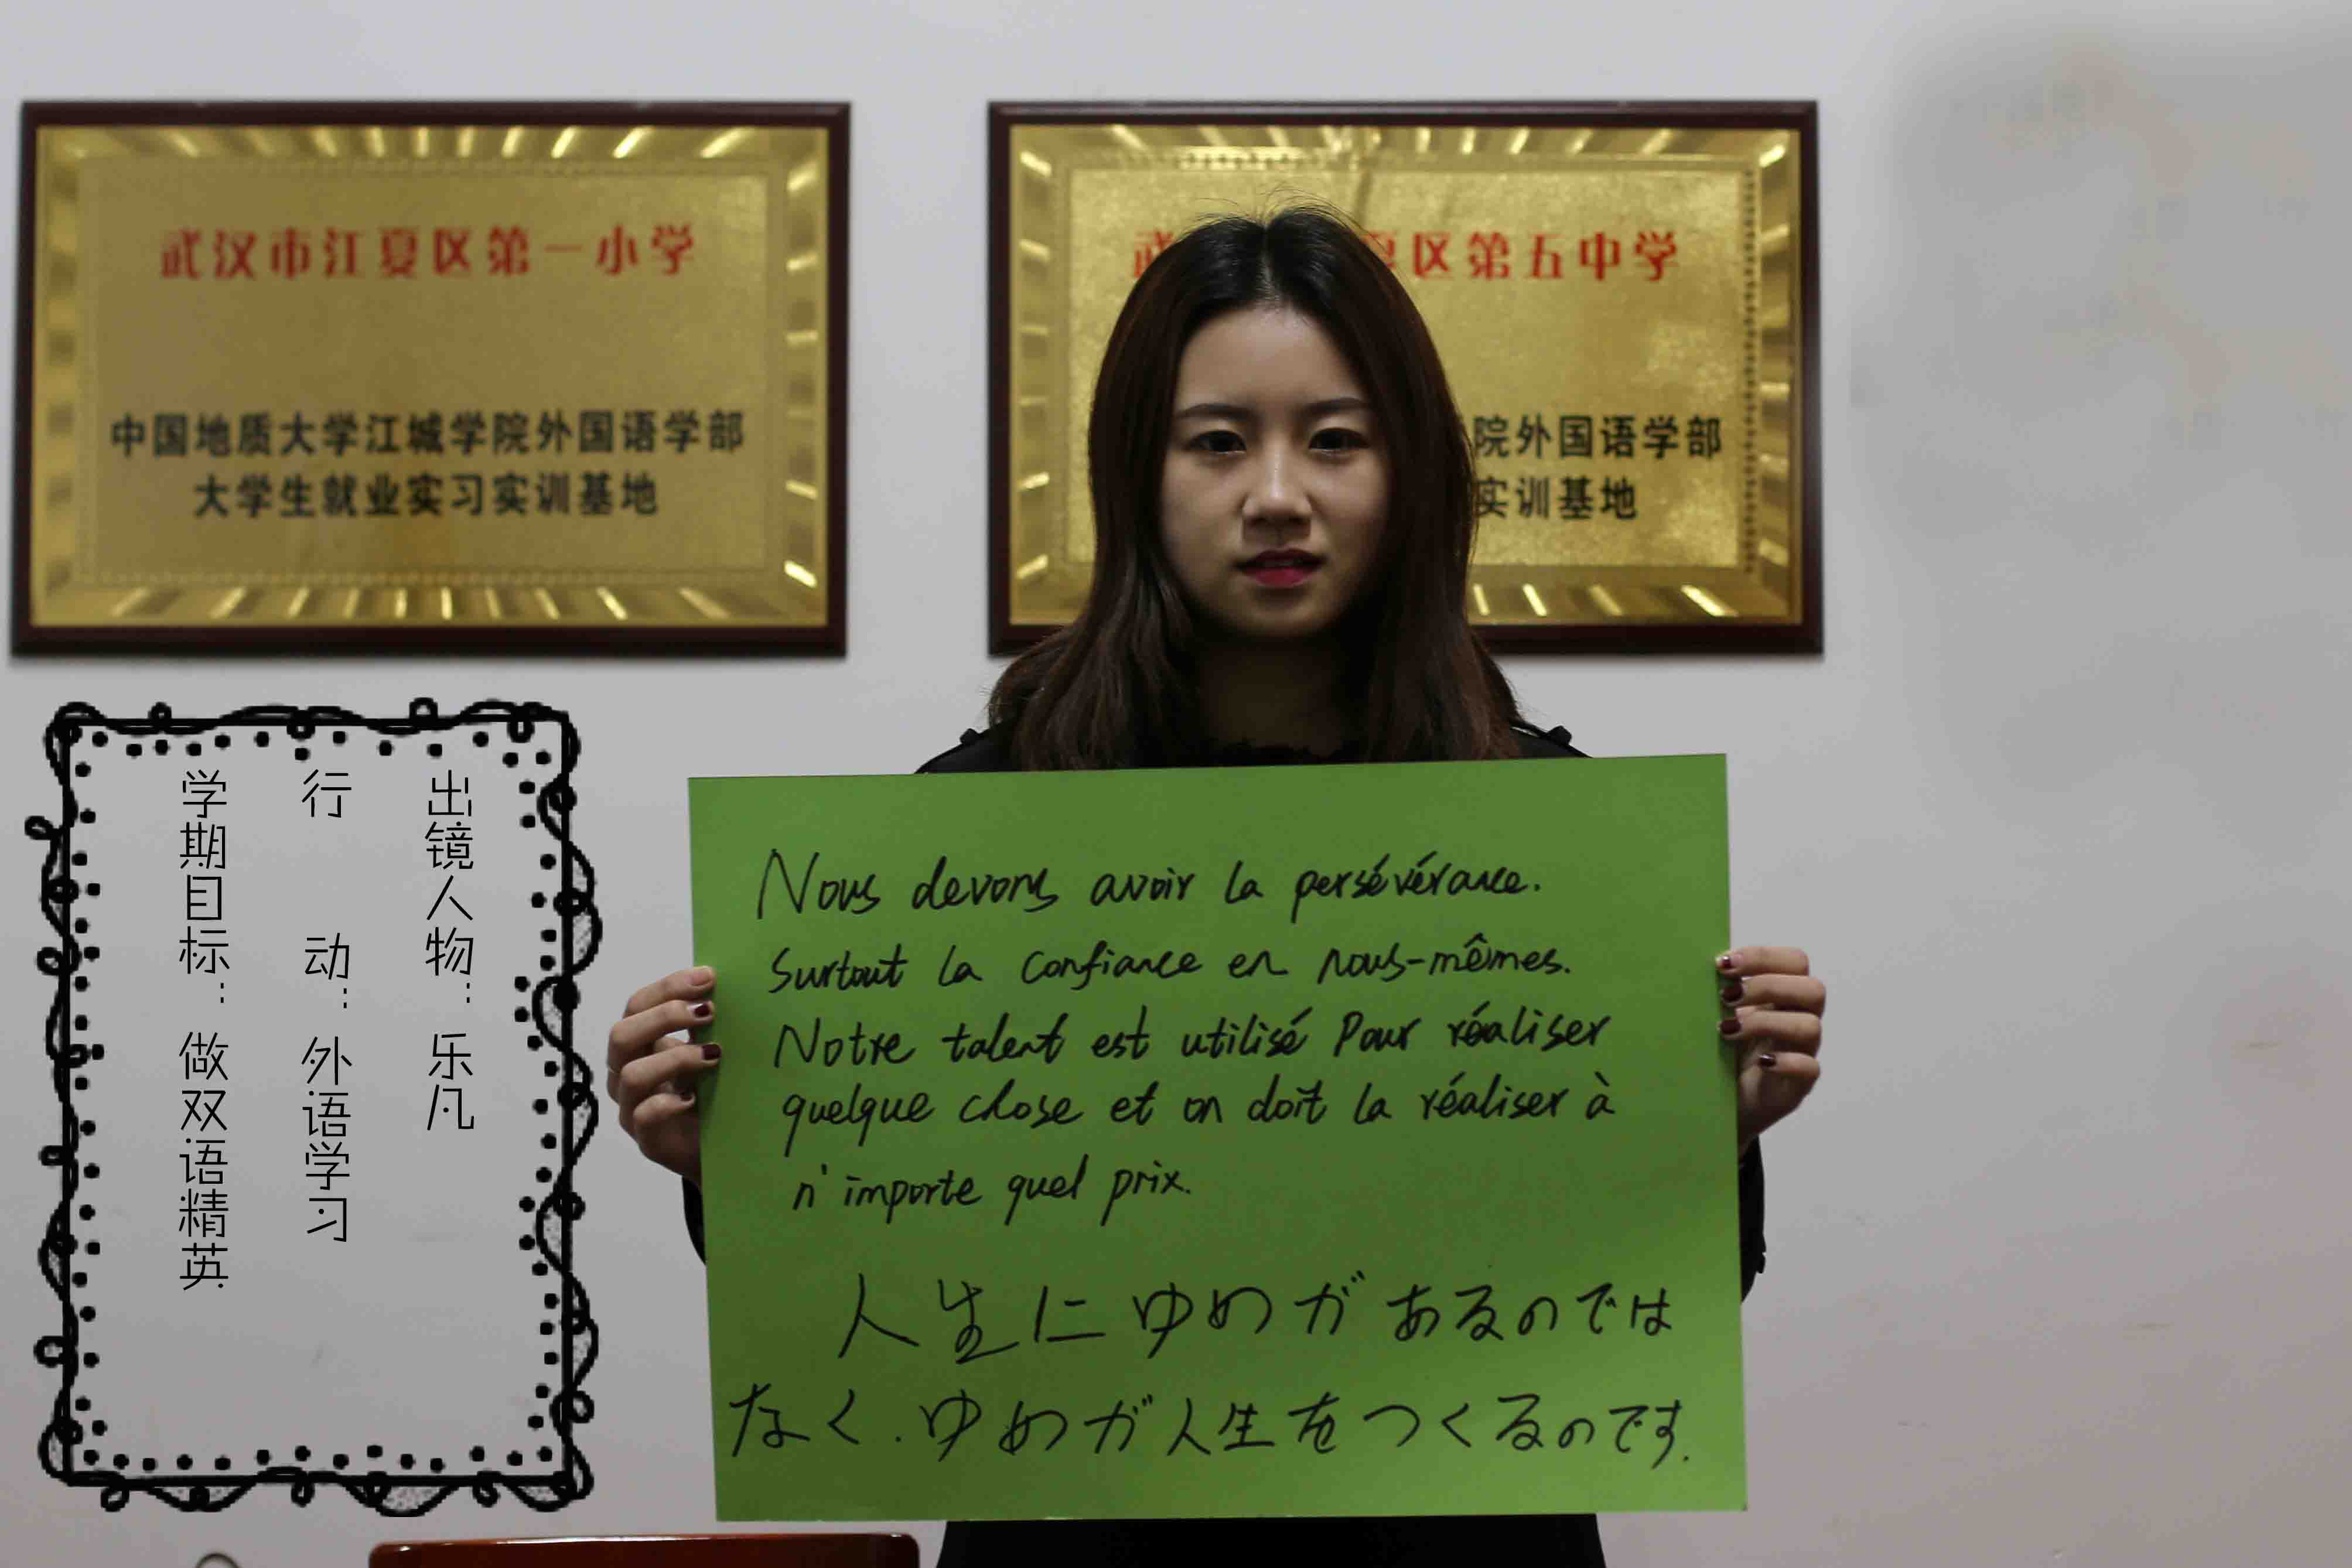 武汉市江夏区第一小学
中国地质大学江城学院外国语学部
大学生就业实习实训基地
武 夏区第五中学
院外国语学部
实训基地
出镜人物：乐凡
行动：外语学习
学期目标：做双语精英
Nous devons avoir la persévérance.
Surtout la confiance en nous-mêmes.
Notre talent est utilisé Pour réaliser
quelque chose et on doit la réaliser à
n'importe quel prix.
人生にゆめがあるのでは
なく.ゆめが人生をつくるのです.